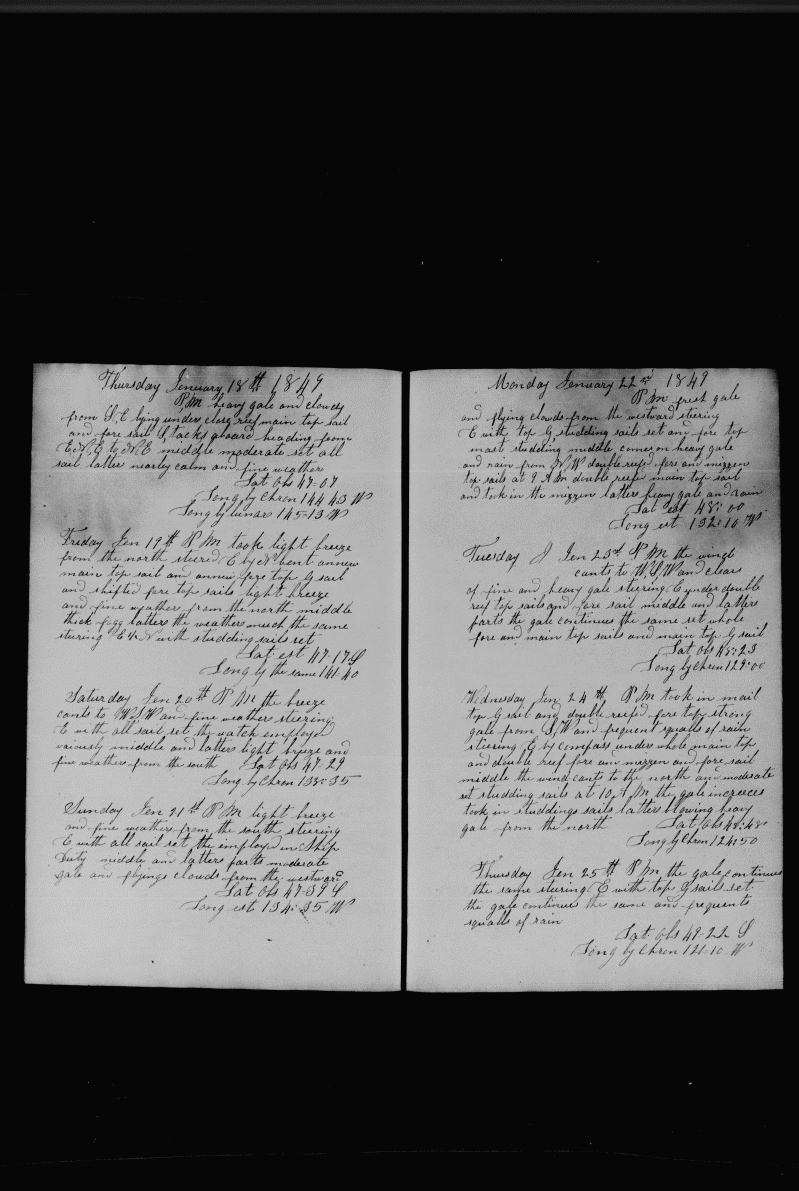 Thursday Jenuary 18th 1849
P M heavy gale and clowds
from S, E lying under close reef main top sail
and fore sail S, tacks aboard heading from
E, N, E to N, E middle moderate set all
sail latter nearly calm and fine weather
Lat Obs 47-07
Long by Chron 144 43 W
Long by lunar 145-13 W
Friday Jen 19th P M took light breeze
from the north steered E by N bent annew
main top sail and annew fore top G sail
and shifted fore top sails light breeze
and fine weather from the north middle
thick fogg latters the weather much the same
stering E & N with studding sails set
Lat est 47-17 S
Long by the same 141-40
Saturday Jen 20th P M the breeze
cants to W S W and fine weather steering
E with all sail set the watch employd
variously middle and latters light breeze and
fine weathers from the south Lat Obs 47-29
Long by Chron 138-35
Sunday Jen 21th P M light breeze
and fine weather from the south steering
E with all sail set the employd in Ship
Duty middle and latters parts moderate
gale and flyinge clowds from the westward
Lat Obs 47-39 S
Long est 134-35 W
Monday Jenuary 22nd 1849
P M fresh gale
and flying clowds from the westward steering
E with top G, studding sails set and fore top
mast studding middle comes on heavy gale
and rain from N, W double reefd fore and mizzen
top sails at 9 A M double reefed main top sail
and took in the mizzen latters heavy gale and rain
Lat est 48-00
Long est 132-10 W
Tuesday Jen 23rd P M the wind
cants to W, S, W and clears
of fine and heavy gale steering E under double
reef top sails and fore sail middle and latters
parts the gale continues the same set whole
fore and main top sails and main top G sail
Lat obs 48-23
Long by Chron 129-00
Wednesday Jen 24th P M took in mail
top G sail and double reefd fore top strong
gale from S, W and frequent squalls of rain
steering E by compass under whole main top
and double reef fore and mizzen and fore sail
middle the wind cants to the north and moderate
set studding sails at 10 A M the gale increeces
took in studdings sails latters blowing heavy
gale from the north Lat Obs 48-48
Long by Chron 124-50
Thursday Jen 25th P M, the gale continues
the same steering E with top G sails set
the gale continues the same and frequents
squalls of rain
Lat Obs 49-22 S
Long by Chron 121-10 W